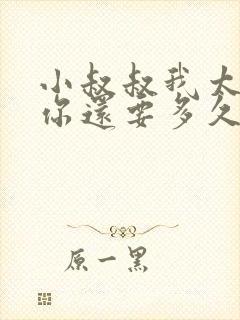 小叔叔我太
你還要多久
原一黑